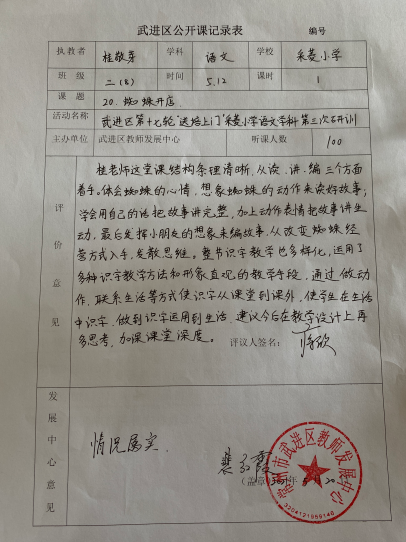 武进区公开课记录表 编号
执教者 桂敬芽 学科 语文 学校 采菱小学
班级 二(8) 时间 5.12 课时 1
课题 20.蜘蛛开店
活动名称 武进区第十七轮"送培上门"采菱小学语文学科第三次研训
主办单位 武进区教师发展中心 听课人数 100
评价意见
桂老师这堂课结构条理清晰,从读、讲、编三个方面
着手。体会蜘蛛的心情,想象蜘蛛的动作来读好故事;
学会用自己的话把故事讲完整,加上动作表情把故事讲生
动,最后发挥小朋友的想象来编故事,从改变蜘蛛经
营方式入手,发散思维。整节识字教学也多样化,运用了
多种识字教学方法和形象直观的教学手段,通过做动
作、联系生活等方式使识字从课堂到课外,使学生在生活
中识字,做到识字运用到生活。建议今后在教学设计上再
多思考,加深课堂深度。
评议人签名: 蒋欣
发展中心意见
情况属实.
裴红霞
(盖章) 年 20
常州市武进区教师发展中心